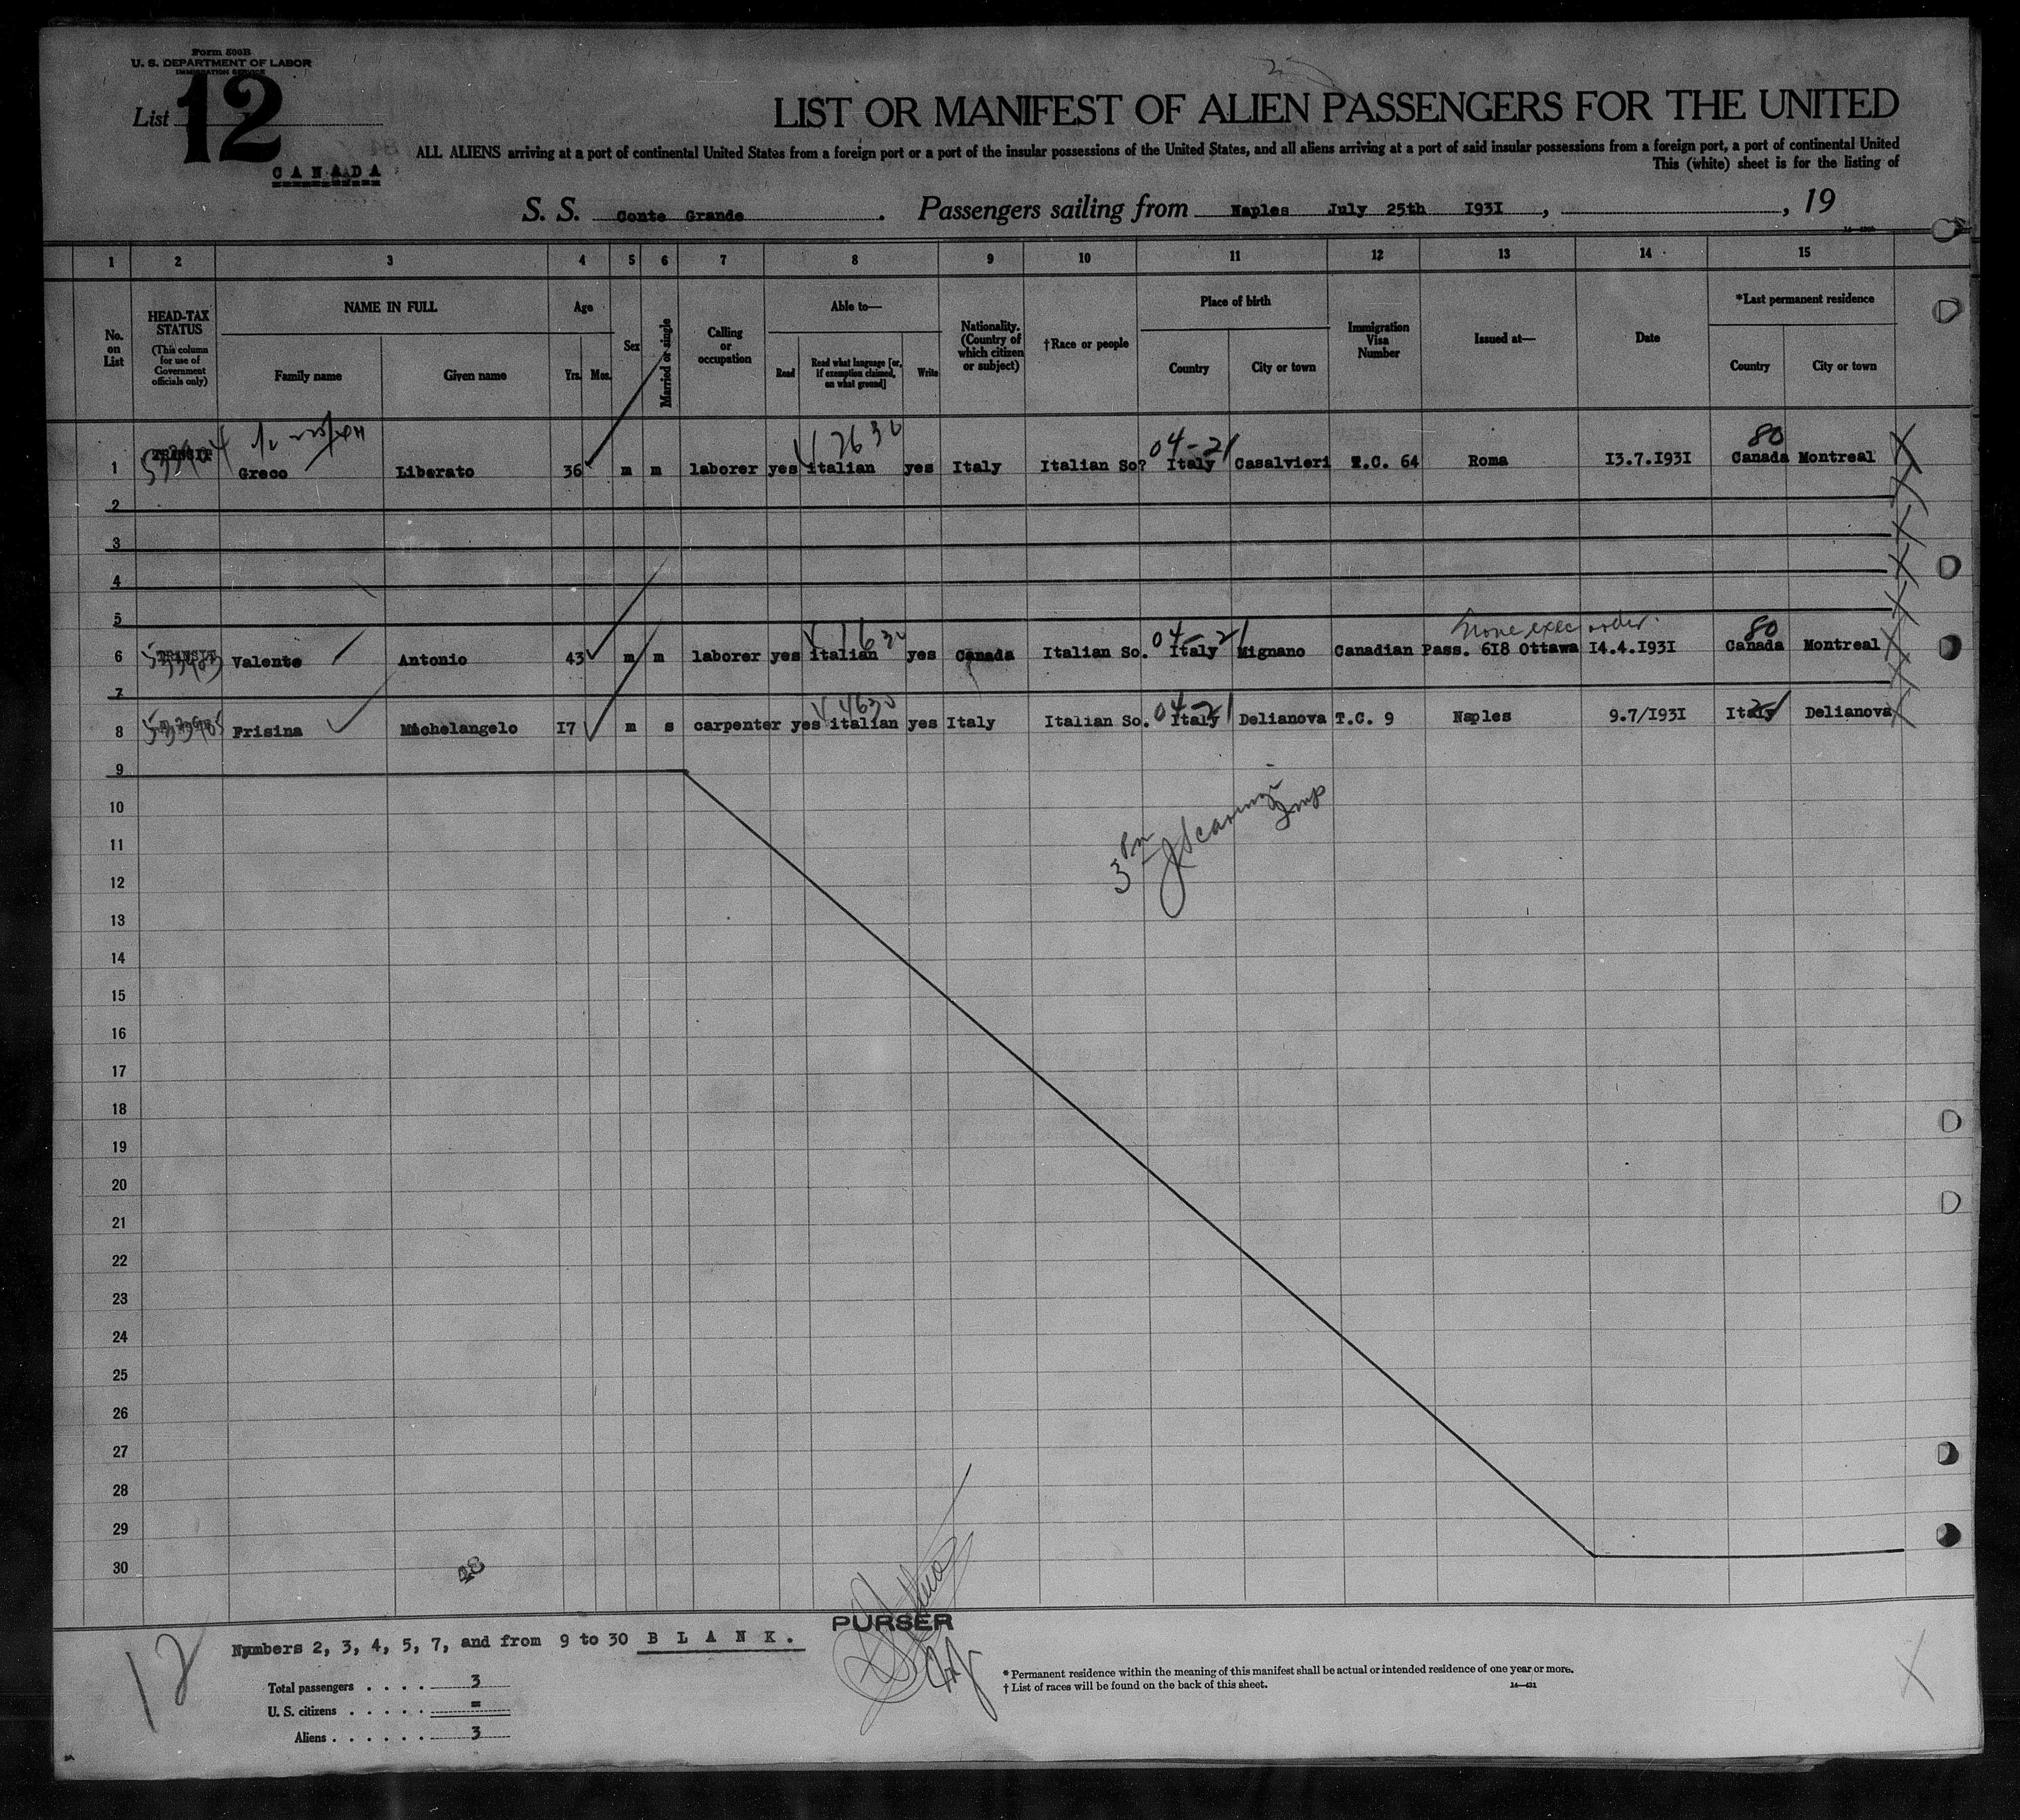 Form 500B
U. S. DEPARTMENT OF LABOR
IMMIGRATION SERVICE
List 12
CANADA
LIST OR MANIFEST OF ALIEN PASSENGERS FOR THE UNITED
ALL ALIENS arriving at a port of continental United States from a foreign port or a port of the insular possessions of the United States, and all aliens arriving at a port of said insular possessions from a foreign port, a port of continental United
This (white) sheet is for the listing of
S. S. Conte Grande. Passengers sailing from Naples July 25th I93I, , 19
1 2 3 4 5 6 7 8 9 10 11 12 13 14 15
No. on List
HEAD-TAX STATUS (This column for use of Government officials only)
NAME IN FULL
Family name Given name
Age
Yrs. Mos.
Sex
Married or single
Calling or occupation
Able to—
Read
Read what language [or, if exemption claimed, on what ground]
Write
Nationality. (Country of which citizen or subject)
†Race or people
Place of birth
Country City or town
Immigration Visa Number
Issued at—
Date
*Last permanent residence
Country City or town
04-21 80
1 TRANSIT Greco Liberato 36 m m laborer yes italian yes Italy Italian So? Italy Casalvieri T.C. 64 Roma I3.7.I93I Canada Montreal
2
3
4
5
None exec order.
04-21 80
6 TRANSIT Valente Antonio 43 m m laborer yes italian yes Canada Italian So. Italy Mignano Canadian Pass. 6I8 Ottawa I4.4.I93I Canada Montreal
7
04-21
8 Frisina Michelangelo I7 m s carpenter yes italian yes Italy Italian So. Italy Delianova T.C. 9 Naples 9.7/I93I Italy Delianova
9
10
11
12
13
14
15
16
17
18
19
20
21
22
23
24
25
26
27
28
29
30
48
PURSER
12
Numbers 2, 3, 4, 5, 7, and from 9 to 30 B L A N K .
Total passengers . . . . 3
U. S. citizens . . . . . =
Aliens . . . . . . 3
* Permanent residence within the meaning of this manifest shall be actual or intended residence of one year or more.
† List of races will be found on the back of this sheet.
14—431